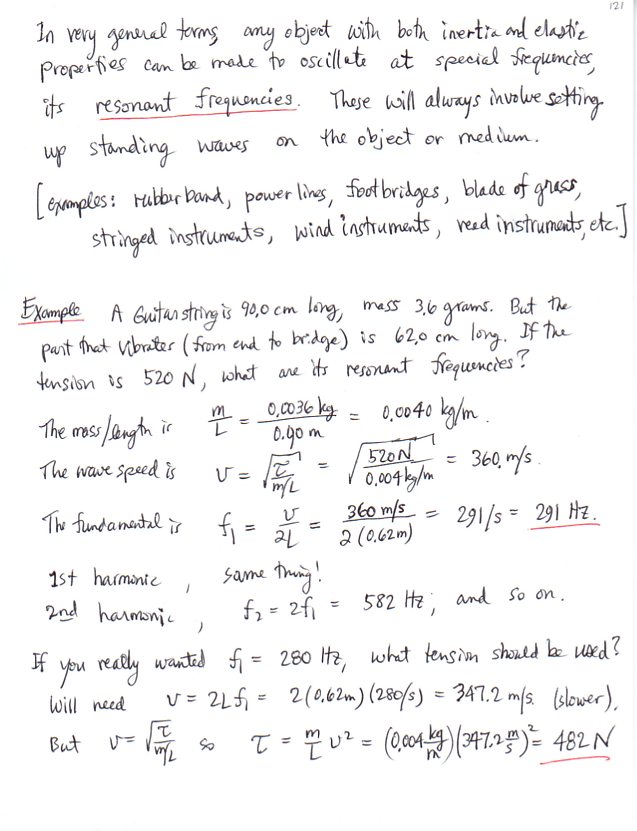 121
In very general terms, any object with both inertia and elastic
properties can be made to oscillate at special frequencies,
its resonant frequencies. These will always involve setting
up standing waves on the object or medium.
[examples: rubber band, power lines, footbridges, blade of grass,
stringed instruments, wind instruments, reed instruments, etc.]
Example A Guitar string is 90.0 cm long, mass 3.6 grams. But the
part that vibrates (from end to bridge) is 62.0 cm long. If the
tension is 520 N, what are its resonant frequencies?
The mass/length is m/L = 0.0036 kg / 0.90 m = 0.0040 kg/m.
The wave speed is v = √(τ / m/L) = √(520 N / 0.004 kg/m) = 360. m/s.
The fundamental is f₁ = v / 2L = 360 m/s / 2(0.62m) = 291/s = 291 Hz.
1st harmonic, same thing!
2nd harmonic, f₂ = 2f₁ = 582 Hz, and so on.
If you really wanted f₁ = 280 Hz, what tension should be used?
Will need v = 2Lf₁ = 2(0.62m)(280/s) = 347.2 m/s. (slower),
But v = √(τ / m/L) so τ = m/L v² = (0.004 kg/m)(347.2 m/s)² = 482 N